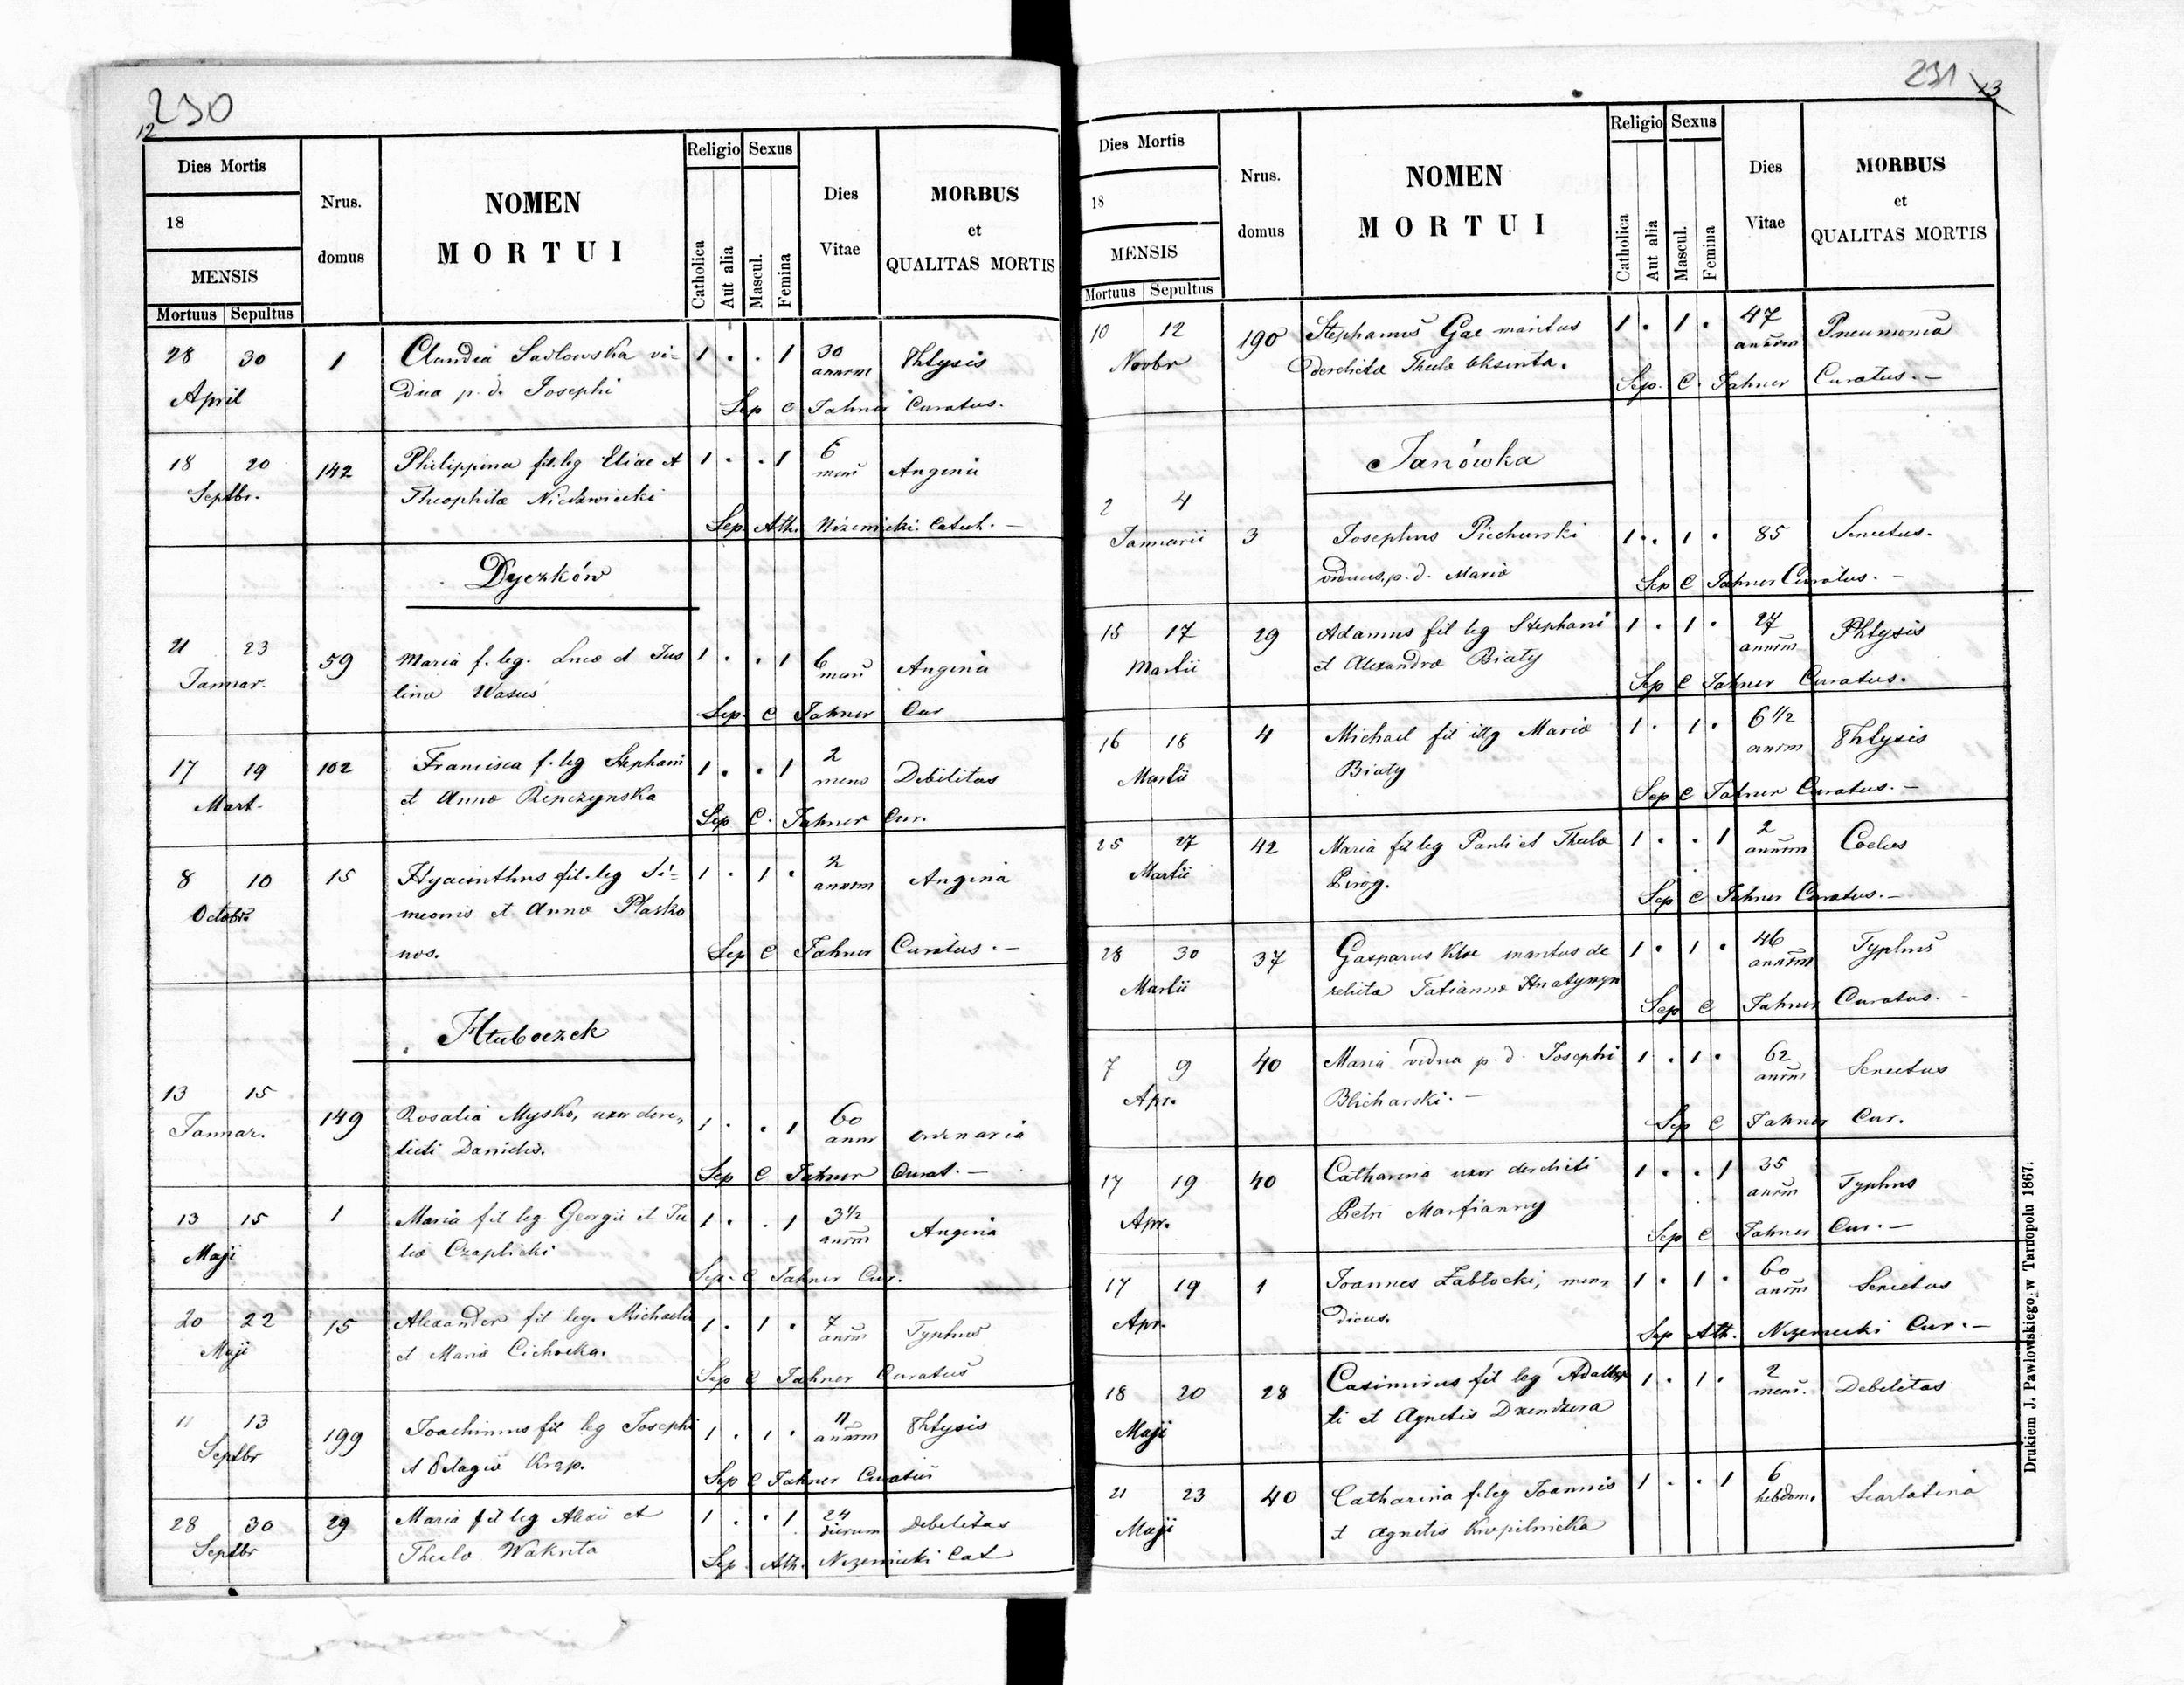 230
12
Dies Mortis
18
MENSIS
Mortuus Sepultus
Nrus. domus
NOMEN
MORTUI
Religio Sexus
Catholica Aut alia Mascul. Femina
Dies Vitae
MORBUS
et
QUALITAS MORTIS
28 30 1 Claudia Sadowska vi= 1 . . 1 30 Phtysis
April dua p. d. Josephi annrm
Sep C Fahner Curatus.
18 20 142 Philippina fil. leg Eliae et 1 . . 1 6 Angina
Septbr. Theophila mens
Sep. Ath. Nizeniecki
Dyczków
21 23 59 Maria f. leg. Luca et Jus 1 . . 1 6 Angina
Januar. tina Wasus mens
Sep. C Fahner Cur
17 19 102 Francisca f. leg Stephani 1 . . 1 2 Debilitas
Mart. et Anna mens
Sep C. Fahner Cur.
8 10 15 Hyacinthus fil. leg Si= 1 . 1 . 2 Angina
Octobr. meonis et Anna Plasko annrm
nos.
Sep C Fahner Curatus. —
Hłuboczek
13 15 149 Rosalia Mysko, uxor dere, 1 . . 1 60 ordinaria
Januar. licti Danielis. annr
Sep C Fahner Curat. —
13 15 1 Maria fil leg. Georgii et Ju 1 . . 1 3½ Angina
Maji lia Czaplicki annrm
Sep. C Fahner Cur.
20 22 15 Alexander fil leg. Michaelis 1 . 1 . 7 Typhus
Maji et Maria Cichocka. annrm
Sep C Fahner Curatus
11 13 199 Joachimus fil leg Josephi 1 . 1 . 11 Phtysis
Septbr et Pelagia Krąp. annrm
Sep C Fahner Curatus
28 30 29 Maria fil leg Alexii et 1 . . 1 24 Debilitas
Septbr Thecla Wakuta dierum
Sep. Ath. Nizeniecki Cat
231
13
Dies Mortis
18
MENSIS
Mortuus Sepultus
Nrus. domus
NOMEN
MORTUI
Religio Sexus
Catholica Aut alia Mascul. Femina
Dies Vitae
MORBUS
et
QUALITAS MORTIS
10 12 190 Stephanus Gac maritus 1 . 1 . 47 Pneumonia
Novbr derelicta Thecla Oksenta. annrm
Sep. C. Fahner Curatus. —
Janówka
2 4
Januarii 3 Josephus Piechurski 1 . 1 . 85 Senectus.
viduus, p. d. Maria
Sep C Fahner Curatus. —
15 17 29 Adamus fil leg Stephani 1 . 1 . 27 Phtysis
Martii et Alexandra Biały annrm
Sep C Fahner Curatus.
16 18 4 Michael fil illg Maria 1 . 1 . 6 1/2 Phtysis
Martii Biały annrm
Sep C Fahner Curatus. —
25 27 42 Maria fil leg Pauli et Thecla 1 . . 1 2
Martii Pirog. annrm
Sep C Fahner Curatus. —
28 30 37 Gasparus maritus de 1 . 1 . 46 Typhus
Martii relicta Tatianna Hnatyszyn annrm
Sep C Fahner Curatus.
7 9 40 Maria vidua p. d. Josephi 1 . 1 . 62 Senectus
Apr. Blicharski. — annrm
Sep C Fahner Cur.
17 19 40 Catharina uxor derelicti 1 . . 1 35 Typhus
Apr. Petri Marfianny annrm
Sep C Fahner Cur. —
17 19 1 Joannes Zabłocki, men, 1 . 1 . 60 Senectus
Apr. dicus. annrm
Sep Ath. Nizeniecki Cur. —
18 20 28 Casimirus fil leg Adalber 1 . 1 . 2 Debilitas
Maji ti et Agnetis Dzendzera mens.
21 23 40 Catharina f leg Joannis 1 . . 1 6 Scarlatina
Maji et Agnetis Kropilnicka hebdom.
Drukiem J. Pawłowskiego w Tarnopolu 1867.